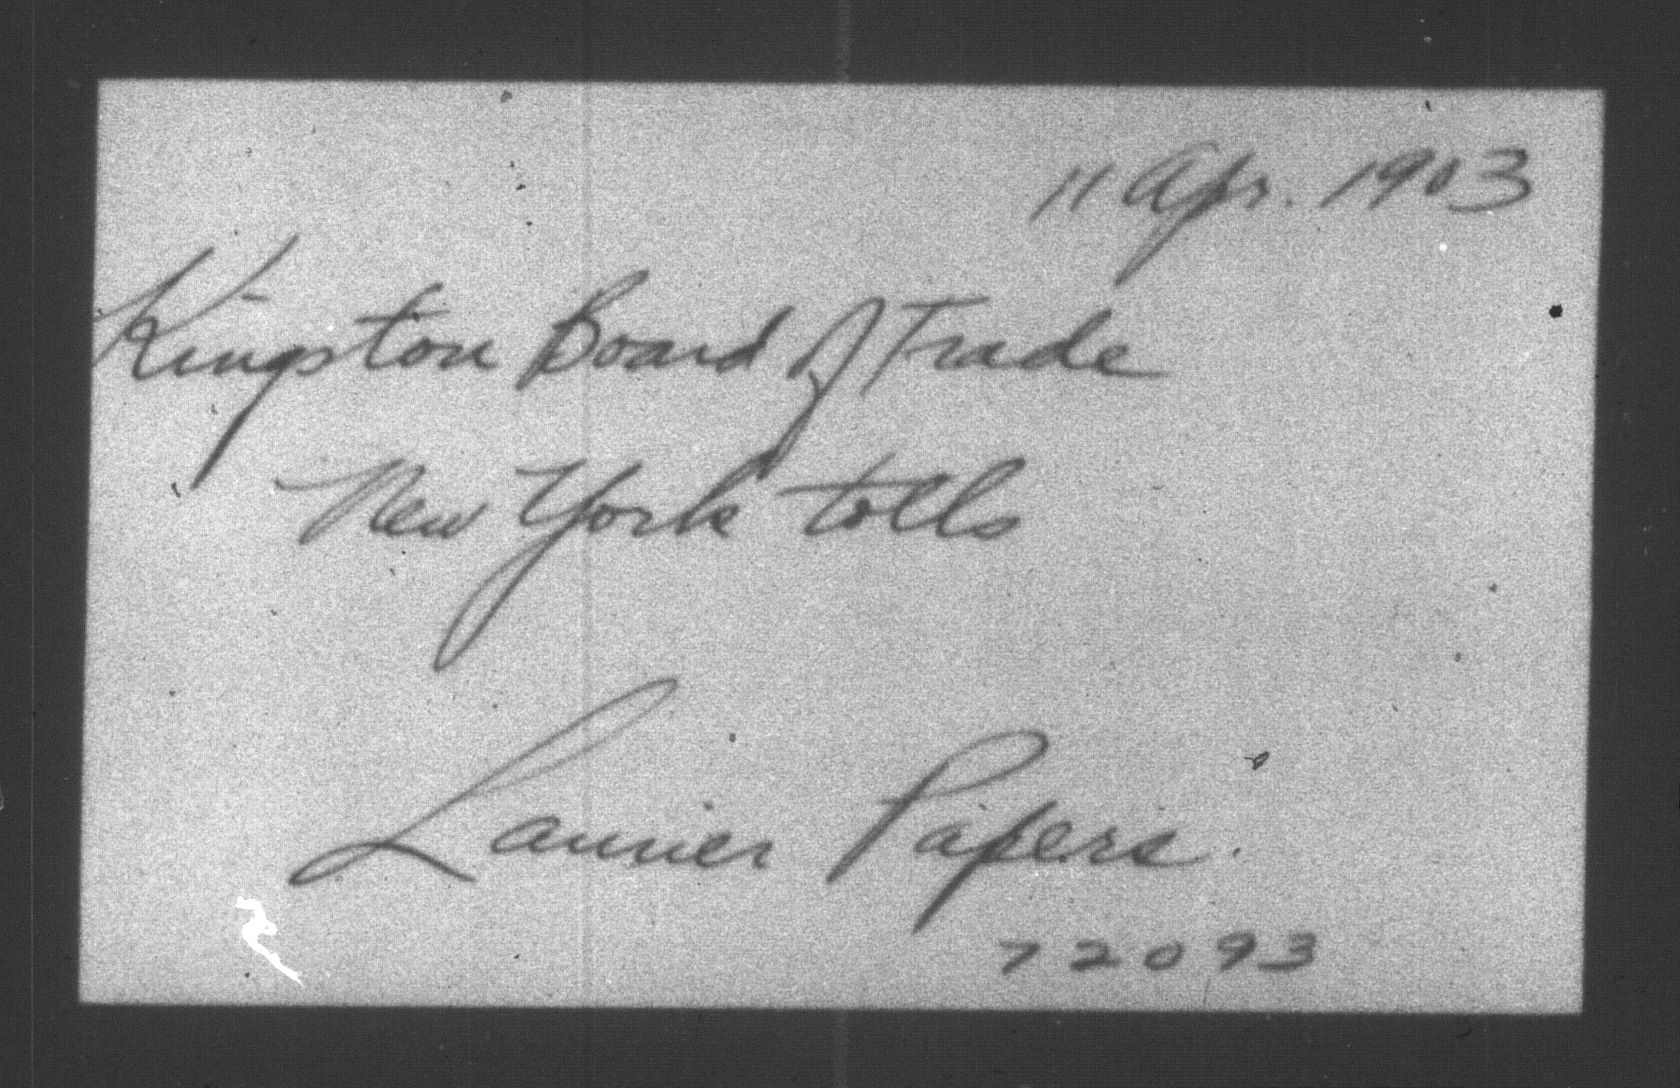 11 Apr. 1903
Kingston Board of Trade
New York tolls
Laurier Papers.
72093